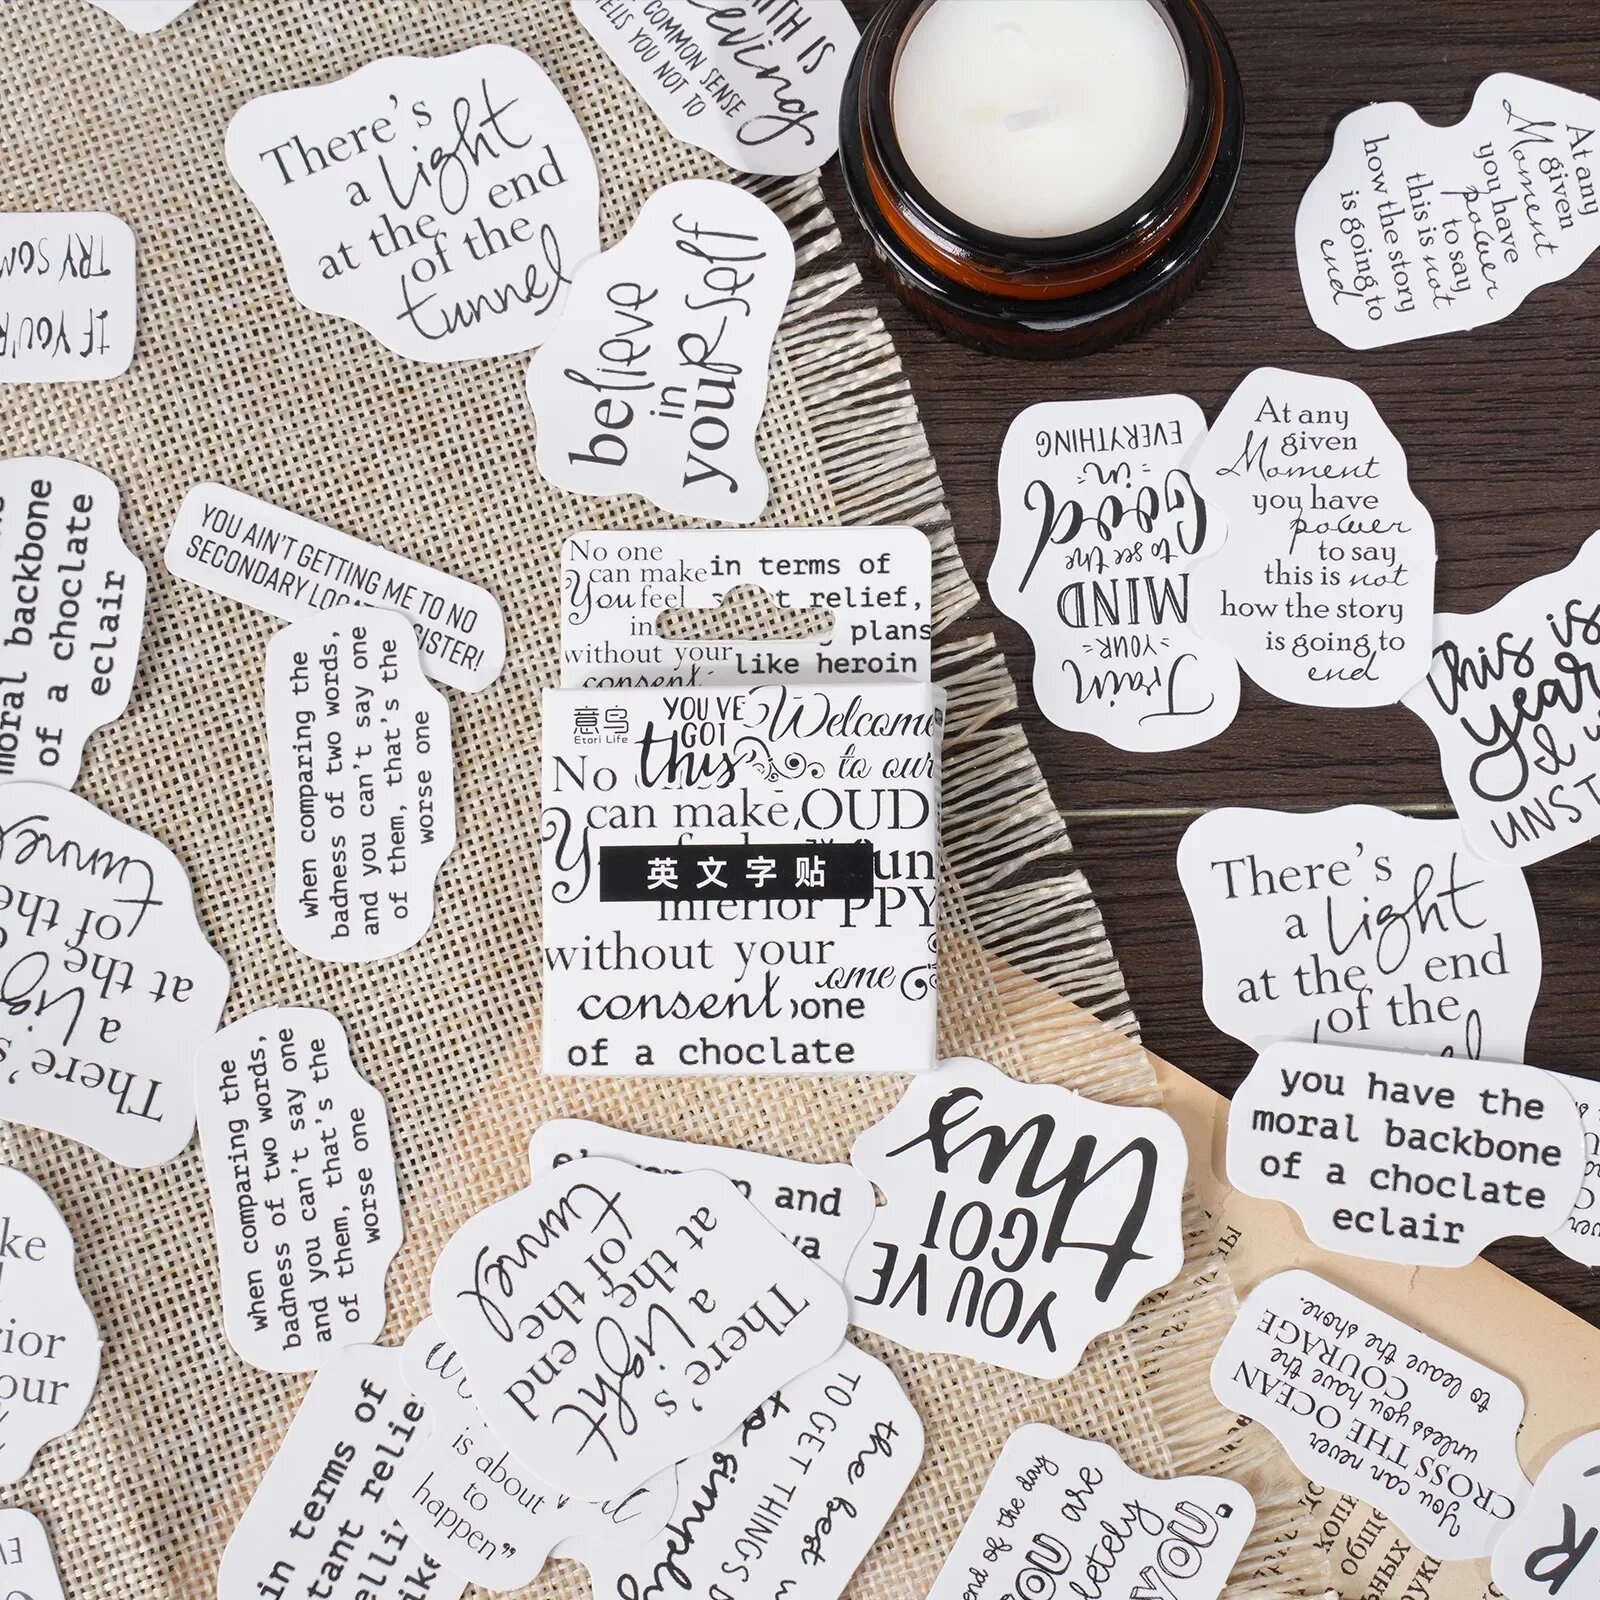 ITH IS
eeving
COMMON SENSE
TELLS YOU NOT TO
There's
a Light
at the end
of the
tunnel
believe
in
yourself
At any
given
Moment
you have
power
to say
this is not
how the story
is going to
end
IF YOU'R
TRY SOM
Train
=YOUR=
MIND
to see the
Good
=in=
EVERYTHING
At any
given
Moment
you have
power
to say
this is not
how the story
is going to
end
moral backbone
of a choclate
eclair
YOU AIN'T GETTING ME TO NO
SECONDARY LOCAT
SISTER!
when comparing the
badness of two words,
and you can't say one
of them, that's the
worse one
No one
can make
You feel
in
without your
consent
in terms of
relief,
plans
like heroin
意鸟
Etori Life
YOU'VE
GOT
this
Welcome
to our
No
can make
OUD
英文字贴
un
inferior
PPY
without your
ome
consent
one
of a choclate
this is
year
I
UNST
There's
a Light
at the end
of the
There's
a Light
at the
of the
tunnel
when comparing the
badness of two words,
and you can't say one
of them, that's the
worse one
you have the
moral backbone
of a choclate
eclair
YOU'VE
GOT
this
and
There's
a Light
at the end
of the
tunnel
ke
rior
our
You can never
CROSS THE OCEAN
unless you have the
COURAGE
to leave the shore.
in terms of
tant relie
elli
like
is about
to
happen"
the best
TO GET THINGS
to simply
end of the day
YOU are
letely
YOU.
R
копи
обще